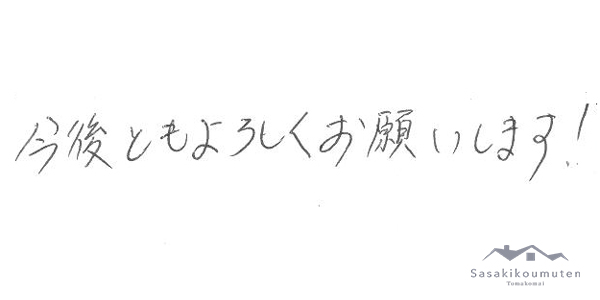 今後ともよろしくお願いします!
Sasakikoumuten
Tomakomai